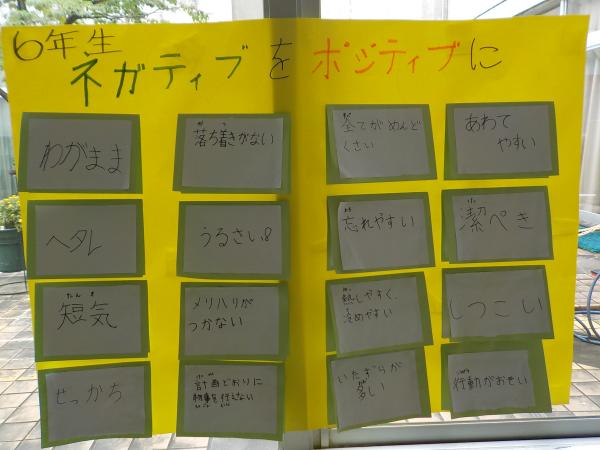 6年生
ネガティブをポジティブに
わがまま
落ち着きがない
全てがめんど
くさい
あわて
やすい
ヘタレ
うるさい
忘れやすい
潔ぺき
短気
メリハリが
つかない
熱しやすく、
冷めやすい
しつこい
せっかち
計画どおりに
物事を行えない
いたずらが
多い
行動がおそい